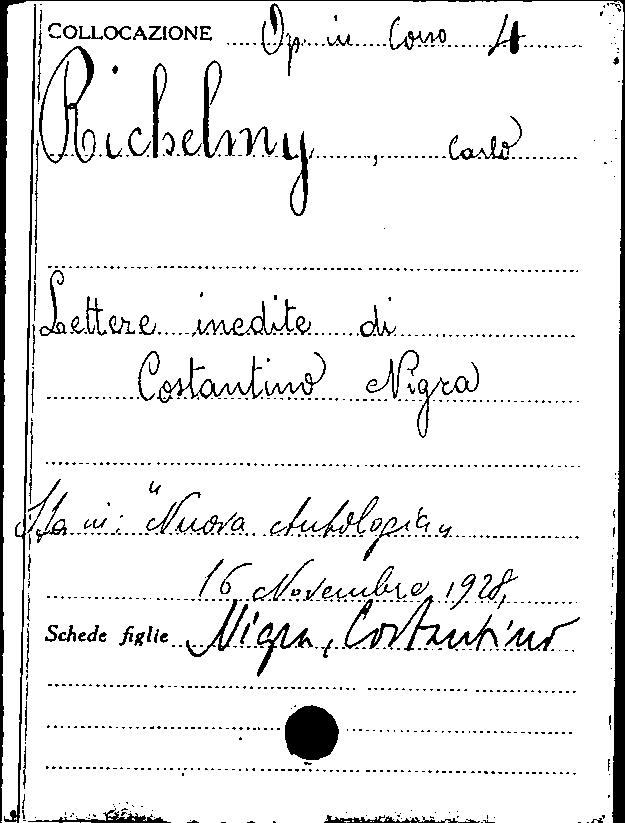 COLLOCAZIONE Op. in Corso 4
Richelmy, Carlo
Lettere inedite di
Costantino Nigra
Sta in: "Nuova Antologia"
16 Novembre 1928,
Schede figlie Nigra, Costantino